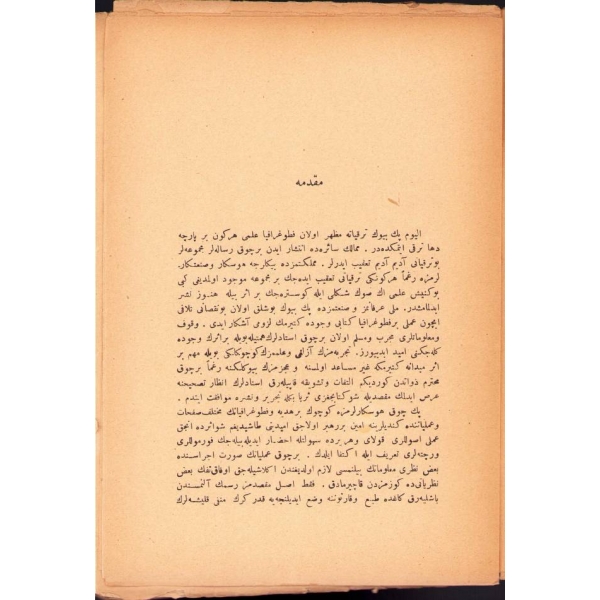 مقدمه
اليوم پك بيوك ترقياته مظهر اولان فطوغرافيا علمى هركون بر پارچه
دها ترقى ايتمكده‌در . ممالك سائره‌ده انتشار ايدن برچوق رساله‌لر مجموعه‌لر
بوترقياتى آديم آديم تعقيب ايدرلر . مملكتمزده بيكلرجه هوسكار وصنعتكار
لرمزه رغماً هركونكى ترقياتى تعقيب ايده‌جك بر مجموعه موجود اولمديغى كبى
بوكنيش علمى اك صوك شكلى ايله كوستره‌جك بر اثر بيله هنوز نشر
ايدلمامشدر. ملى عرفانمز و صنعتمزده پك بيوك بوشلق اولان بونقصانى تلافى
ايچون عملى برفطوغرافيا كتابى وجوده كتيرمك لزومى آشكار ايدى . وقوف
ومعلوماتلرى مجرب ومسلم اولان برچوق استادلرك همتيله بويله براثرك وجوده
كله‌جكنى اميد ايدييورز. تجربه‌مزك آزلغى وعلممزك كوچوكلكى بويله مهم بر
اثر ميدانه كتيرمكه غير مساعد اولسنه و عجزمزك بيوكلكنه رغماً برچوق
محترم ذواتدن كورديكم التفات وتشويقه قاپيله‌رق استادلرك انظار تصحيحنه
عرض ايدلمك مقصديله شوكتابجغزى ثريا بكله تحرير ونشره موافقت ايتدم .
پك چوق هوسكارلرمزه كوچوك برهديه وفطوغرافيانك مختلف صفحات
وعملياتنده كنديلرينه امين بررهبر اولاجق اميدينى طاشيديغم شو اثرده انجق
عملى اصوللرى قولاى وهريرده سهولتله احضار ايديله‌بيله‌جك فورموللرى
ورچته‌لرى تعريف ايله اكتفا ايلدك . برچوق عملياتك صورت اجراسنده
بعض نظرى معلوماتك بيلنمسى لازم اولديغندن اكلاشيله‌جق اوفاق تفك بعض
نظرياتى‌ده كوزمزدن قاچيرمادق . فقط اصل مقصدمز رسمك آلنمسندن
باشليه‌رق كاغده طبع و قارتوننه وضع ايديلنجيه قدر كرك منفى قليشه‌لرك